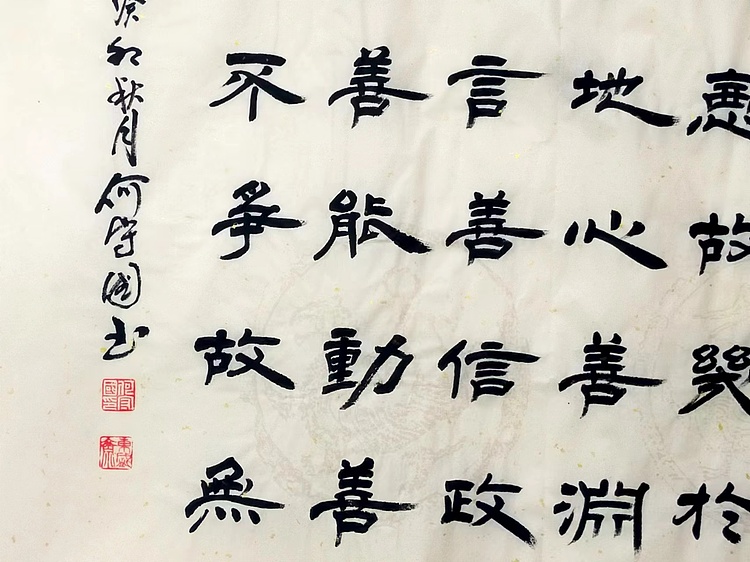 惡故幾於
地心善淵
言善信政
善能動善
不爭故無
癸卯秋月何國书